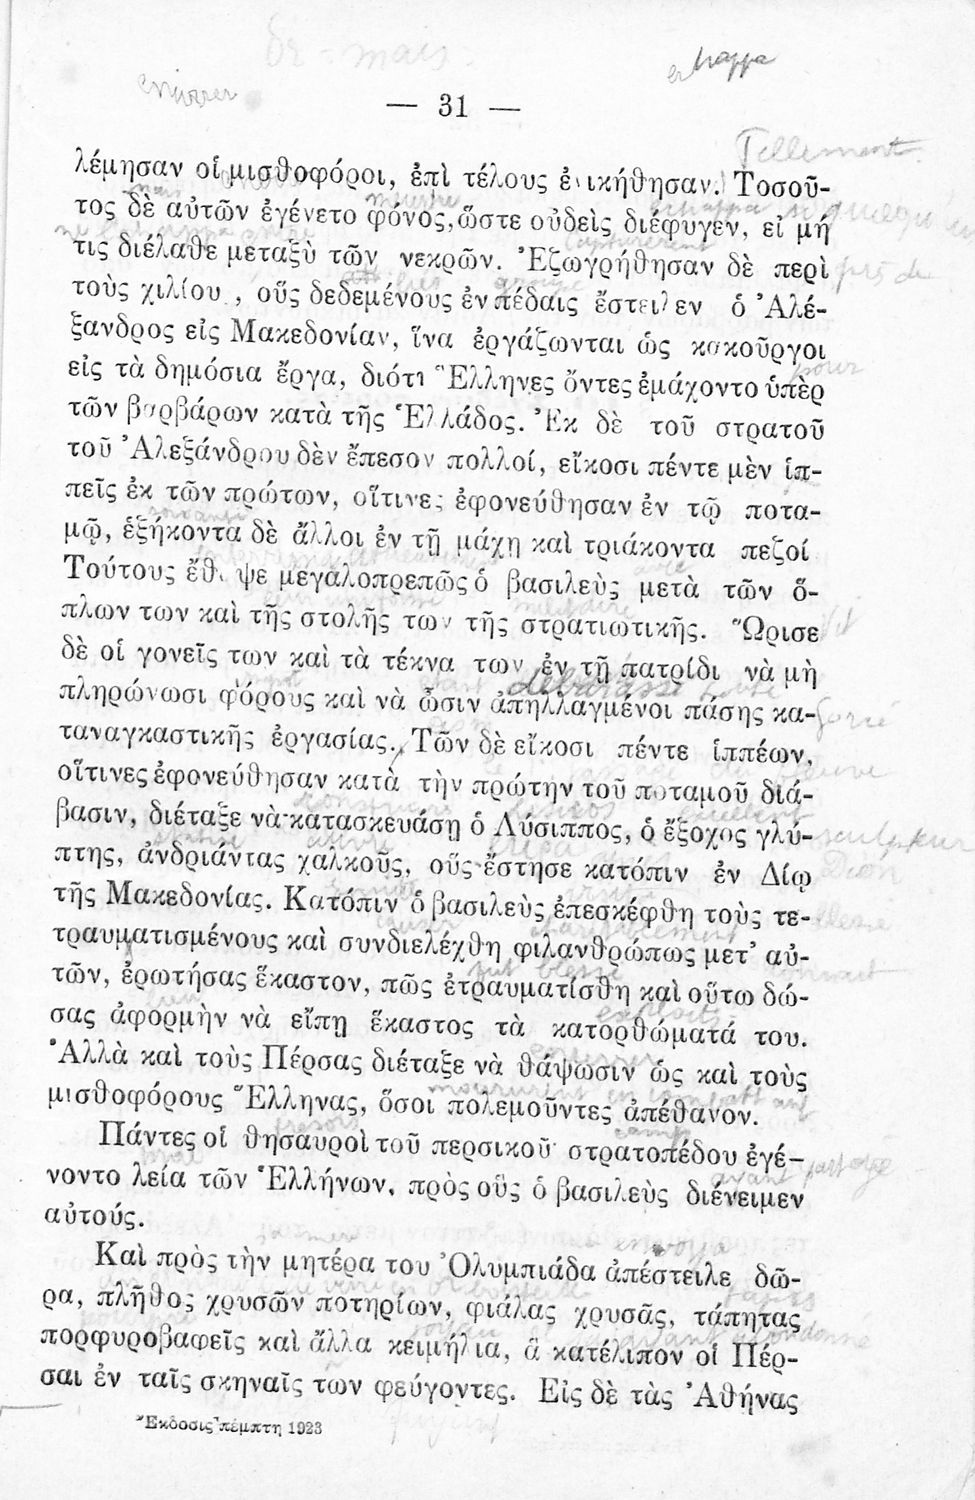 de - mais
— 31 —
λέμησαν οἱ μισθοφόροι, ἐπὶ τέλους ἐνικήθησαν. Τοσοῦ-
Tellement
τος δὲ αὐτῶν ἐγένετο φόνος, ὥστε οὐδεὶς διέφυγεν, εἰ μή
τις διέλαθε μεταξὺ τῶν νεκρῶν. Ἐζωγρήθησαν δὲ περὶ
près de
τοὺς χιλίους, οὓς δεδεμένους ἐν πέδαις ἔστειλεν ὁ Ἀλέ-
ξανδρος εἰς Μακεδονίαν, ἵνα ἐργάζωνται ὡς κακοῦργοι
pour
εἰς τὰ δημόσια ἔργα, διότι Ἕλληνες ὄντες ἐμάχοντο ὑπὲρ
τῶν βαρβάρων κατὰ τῆς Ἑλλάδος. Ἐκ δὲ τοῦ στρατοῦ
τοῦ Ἀλεξάνδρου δὲν ἔπεσον πολλοί, εἴκοσι πέντε μὲν ἱπ-
πεῖς ἐκ τῶν πρώτων, οἵτινες ἐφονεύθησαν ἐν τῷ ποτα-
soixante
μῷ, ἑξήκοντα δὲ ἄλλοι ἐν τῇ μάχῃ καὶ τριάκοντα πεζοί
avec
Τούτους ἔθαψε μεγαλοπρεπῶς ὁ βασιλεὺς μετὰ τῶν ὅ-
leur uniforme militaire
πλων των καὶ τῆς στολῆς των τῆς στρατιωτικῆς. Ὥρισε
δὲ οἱ γονεῖς των καὶ τὰ τέκνα των ἐν τῇ πατρίδι νὰ μὴ
πληρώνωσι φόρους καὶ νὰ ὦσιν ἀπηλλαγμένοι πάσης κα-
forcé
ταναγκαστικῆς ἐργασίας. Τῶν δὲ εἴκοσι πέντε ἱππέων,
οἵτινες ἐφονεύθησαν κατὰ τὴν πρώτην τοῦ ποταμοῦ διά-
βασιν, διέταξε νὰ κατασκευάσῃ ὁ Λύσιππος, ὁ ἔξοχος γλύ-
sculpteur
πτης, ἀνδριάντας χαλκοῦς, οὓς ἔστησε κατόπιν ἐν Δίῳ
Dion
τῆς Μακεδονίας. Κατόπιν ὁ βασιλεὺς ἐπεσκέφθη τοὺς τε-
τραυματισμένους καὶ συνδιελέχθη φιλανθρώπως μετ' αὐ-
fut blessé
τῶν, ἐρωτήσας ἕκαστον, πῶς ἐτραυματίσθη καὶ οὕτω δώ-
exploits
σας ἀφορμὴν νὰ εἴπῃ ἕκαστος τὰ κατορθώματά του.
Ἀλλὰ καὶ τοὺς Πέρσας διέταξε νὰ θάψωσιν ὡς καὶ τοὺς
μισθοφόρους Ἕλληνας, ὅσοι πολεμοῦντες ἀπέθανον.
trésors camp
Πάντες οἱ θησαυροὶ τοῦ περσικοῦ στρατοπέδου ἐγέ-
proie ayant partagé
νοντο λεία τῶν Ἑλλήνων, πρὸς οὓς ὁ βασιλεὺς διένειμεν
αὐτούς.
envoya
Καὶ πρὸς τὴν μητέρα του Ὀλυμπιάδα ἀπέστειλε δῶ-
ρα, πλῆθος χρυσῶν ποτηρίων, φιάλας χρυσᾶς, τάπητας
πορφυροβαφεῖς καὶ ἄλλα κειμήλια, ἃ κατέλιπον οἱ Πέρ-
σαι ἐν ταῖς σκηναῖς των φεύγοντες. Εἰς δὲ τὰς Ἀθήνας
Ἔκδοσις πέμπτη 1923